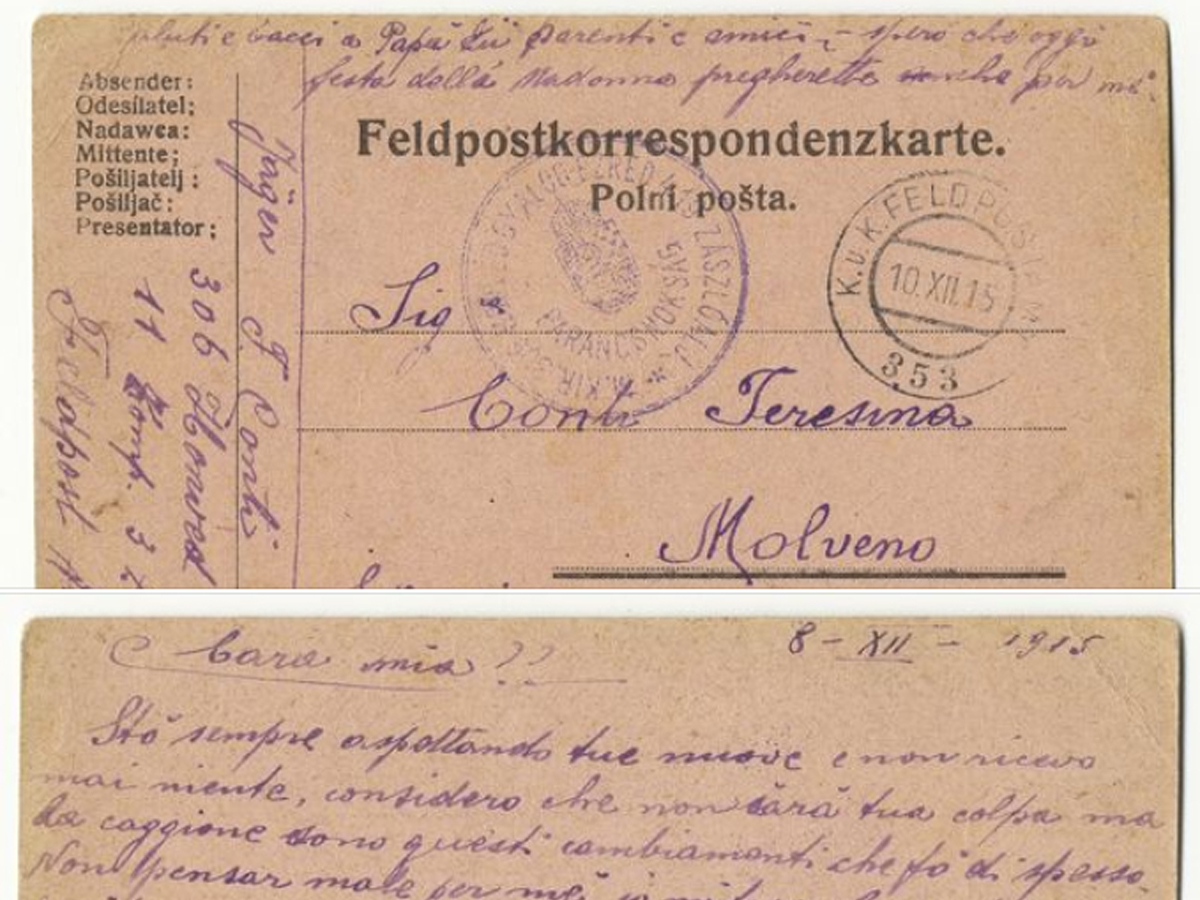 saluti e bacci a Papà Zii parenti e amici, - spero che oggi
festa della Madonna pregherette anche per me.
Absender:
Odesílatel:
Nadawca:
Mittente:
Pošiljatelj:
Pošiljač:
Presentator:
Jäger F Conti
306 Honved
11 Komp. 3
Feldpost
Feldpostkorrespondenzkarte.
Polní pošta.
ZÁSZLÓALJ
PARANCSNOKSÁG
K.u.K. FELDPOSTAMT
10.XII.15
353
Sig
Conti Teresina
Molveno
8 - XII - 1915
Cara mia ??
Stò sempre aspettando tue nuove e non ricevo
mai niente, considero che non sarà tua colpa ma
la caggione sono questi cambiamenti che fò di spesso.
Non pensar male per me, io